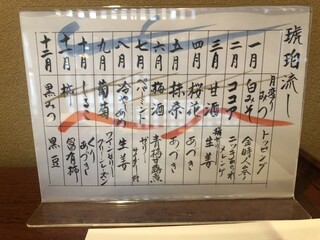 琥珀流し
月変りみつ トッピング
一月 白みそ 金時人参
二月 ココア
三月 甘酒 生姜
四月 桜花 あづき
五月 抹茶 あづき
六月 梅酒 青梅甘露煮
七月 ペパーミント
八月 冷やしあめ 生姜
九月 葡萄
十月 くり あづき
十一月 柿 富有柿
十二月 黒みつ 黒豆